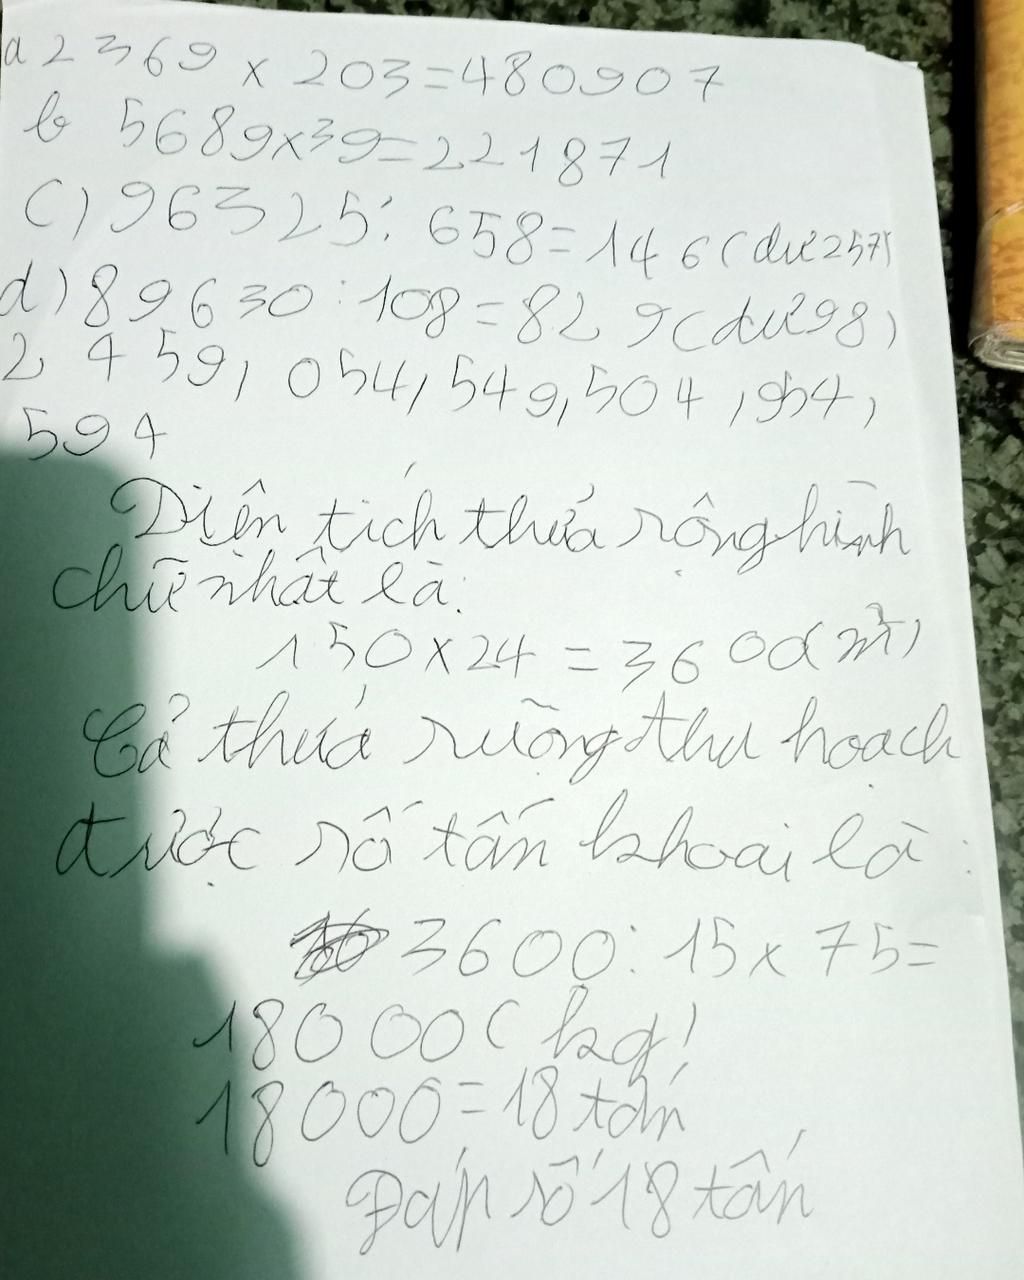 a 2369 x 203=480907
b 5689x39=221871
c) 96325: 658=146 (dư 257)
d) 89630 : 108=829 (dư 98)
2 459, 054, 549, 504, 954,
594
Diện tích thửa rộng hình
chữ nhật là:
150x24 = 3600(m²)
Cả thửa ruộng thu hoạch
được số tấn khoai là :
3600: 15 x 75=
18000 (kg)
18000=18 tấn
Đáp số 18 tấn